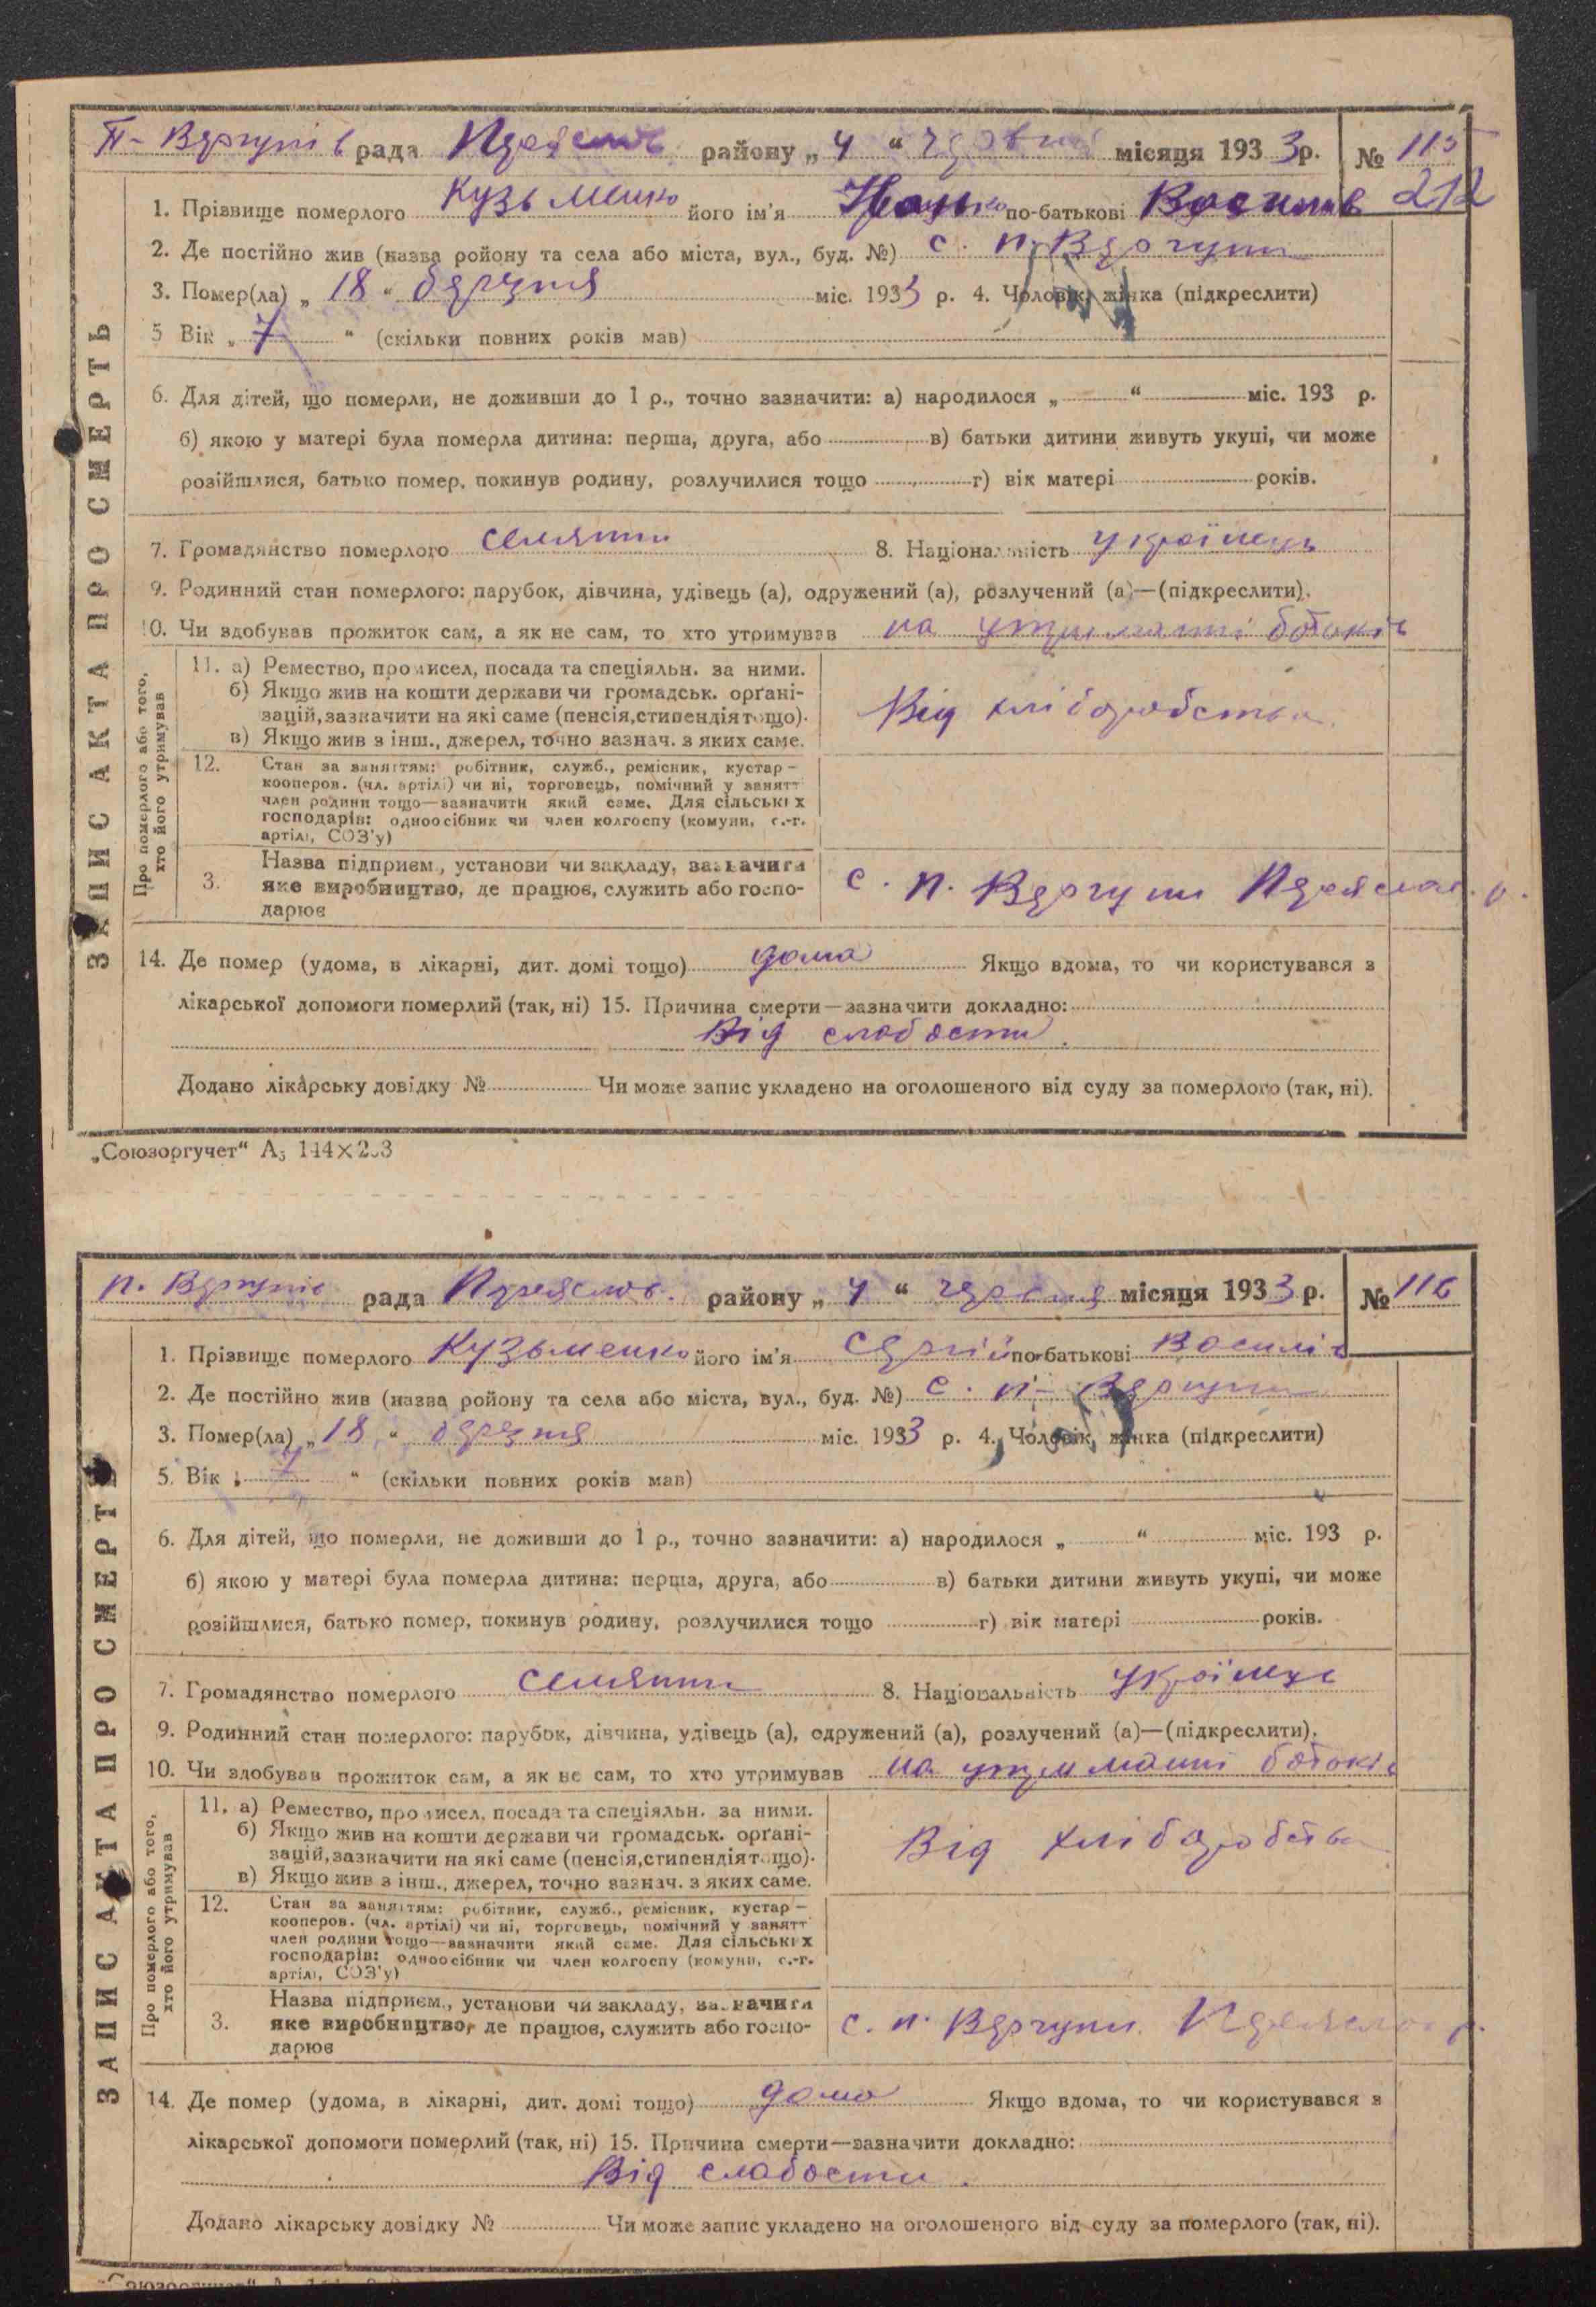 П- Вергунів рада Переяслів району „ 4 “ червня місяця 193 3р. № 115
212
1. Прізвище померлого Кузьменко його ім'я по-батькові Василів
2. Де постійно жив (назва ройону та села або міста, вул., буд. №) с. п. Вергуни
3. Помер(ла) „ 18 “ березня міс. 1933 р. 4. Чоловік, жінка (підкреслити)
5 Вік „ 7 “ (скільки повних років мав)
6. Для дітей, що померли, не доживши до 1 р., точно зазначити: а) народилося „ “ міс. 193 р.
б) якою у матері була померла дитина: перша, друга, або в) батьки дитини живуть укупі, чи може
розійшлися, батько помер, покинув родину, розлучилися тощо г) вік матері років.
7. Громадянство померлого селянин 8. Національність українець
9. Родинний стан померлого: парубок, дівчина, удівець (а), одружений (а), розлучений (а)—(підкреслити).
10. Чи здобував прожиток сам, а як не сам, то хто утримував на утриманні батьків
11. а) Ремество, промисел, посада та спеціяльн. за ними.
б) Якщо жив на кошти держави чи громадськ. орґані-
зацій, зазначити на які саме (пенсія, стипендія тощо).
в) Якщо жив з інш., джерел, точно зазнач. з яких саме.
Від хліборобства
12. Стан за заняттям: робітник, служб., ремісник, кустар —
кооперов. (чл. артілі) чи ні, торговець, помічний у занятт
член родини тощо—зазначити який саме. Для сільських
господарів: одноосібник чи член колгоспу (комуни, с.-г.
артілі, СОЗ'у)
3. Назва підприєм., установи чи закладу, зазначити
яке виробництво, де працює, служить або госпо-
дарює
с. п. Вергуни Переяслав. р.
Про померлого або того,
хто його утримував
14. Де помер (удома, в лікарні, дит. домі тощо) дома Якщо вдома, то чи користувався з
лікарської допомоги померлий (так, ні) 15. Причина смерти—зазначити докладно:
Від слабости.
Додано лікарську довідку № Чи може запис укладено на оголошеного від суду за померлого (так, ні).
ЗАПИС АКТА ПРО СМЕРТЬ
„Союзоргучет“ А5 144×203
п. Вергунів рада Переяслов. району „ 4 “ червня місяця 193 3 р. № 116
1. Прізвище померлого Кузьменко його ім'я Сергій по-батькові Василів
2. Де постійно жив (назва ройону та села або міста, вул., буд. №) с. п- Вергуни
3. Помер(ла) „ 18 “ березня міс. 1933 р. 4. Чоловік, жінка (підкреслити)
5. Вік „ 7 “ (скільки повних років мав)
6. Для дітей, що померли, не доживши до 1 р., точно зазначити: а) народилося „ “ міс. 193 р.
б) якою у матері була померла дитина: перша, друга, або в) батьки дитини живуть укупі, чи може
розійшлися, батько помер, покинув родину, розлучилися тощо г) вік матері років.
7. Громадянство померлого селянин 8. Національність українець
9. Родинний стан померлого: парубок, дівчина, удівець (а), одружений (а), розлучений (а)—(підкреслити).
10. Чи здобував прожиток сам, а як не сам, то хто утримував на утриманні батьків
11. а) Ремество, промисел, посада та спеціяльн. за ними.
б) Якщо жив на кошти держави чи громадськ. орґані-
зацій, зазначити на які саме (пенсія, стипендія тощо).
в) Якщо жив з інш., джерел, точно зазнач. з яких саме.
Від хліборобства
12. Стан за заняттям: робітник, служб., ремісник, кустар —
кооперов. (чл. артілі) чи ні, торговець, помічний у занятт
член родини тощо—зазначити який саме. Для сільських
господарів: одноосібник чи член колгоспу (комуни, с.-г.
артілі, СОЗ'у)
3. Назва підприєм., установи чи закладу, зазначити
яке виробництво, де працює, служить або госпо-
дарює
с. п. Вергуни. Переяслов. р.
Про померлого або того,
хто його утримував
14. Де помер (удома, в лікарні, дит. домі тощо) дома Якщо вдома, то чи користувався з
лікарської допомоги померлий (так, ні) 15. Причина смерти—зазначити докладно:
Від слабости.
Додано лікарську довідку № Чи може запис укладено на оголошеного від суду за померлого (так, ні).
ЗАПИС АКТА ПРО СМЕРТЬ